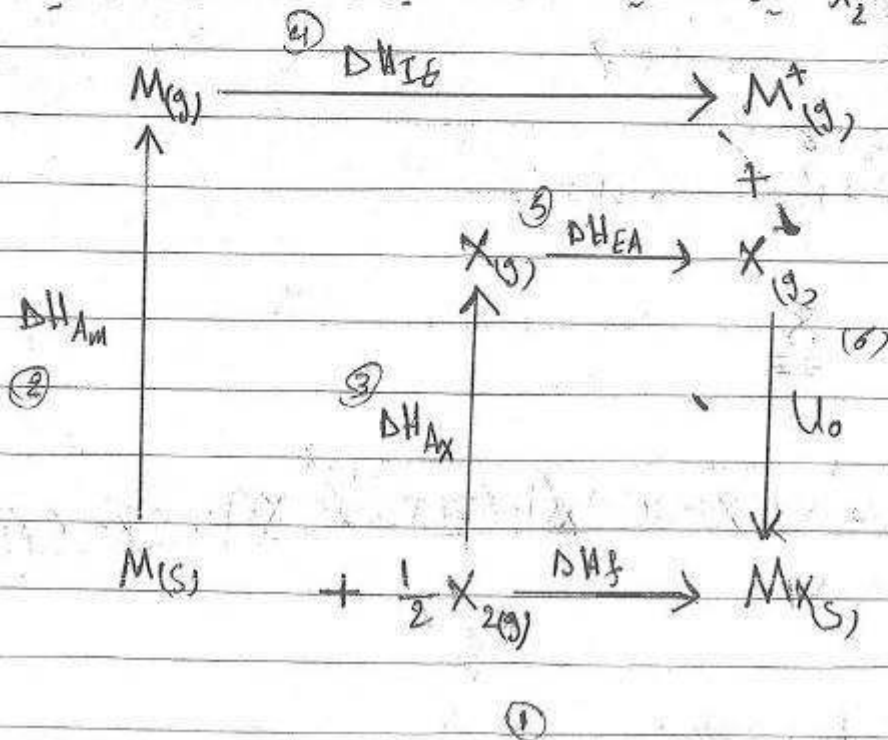 X₂
④ ΔH_IE
M(g) → M⁺(g)
+
⑤ ΔH_EA
X(g) → X⁻(g)
ΔH_Am
② ③ (6)
ΔH_Ax U₀
M(s) + 1/2 X₂(g) ΔH_f → MX(s)
①